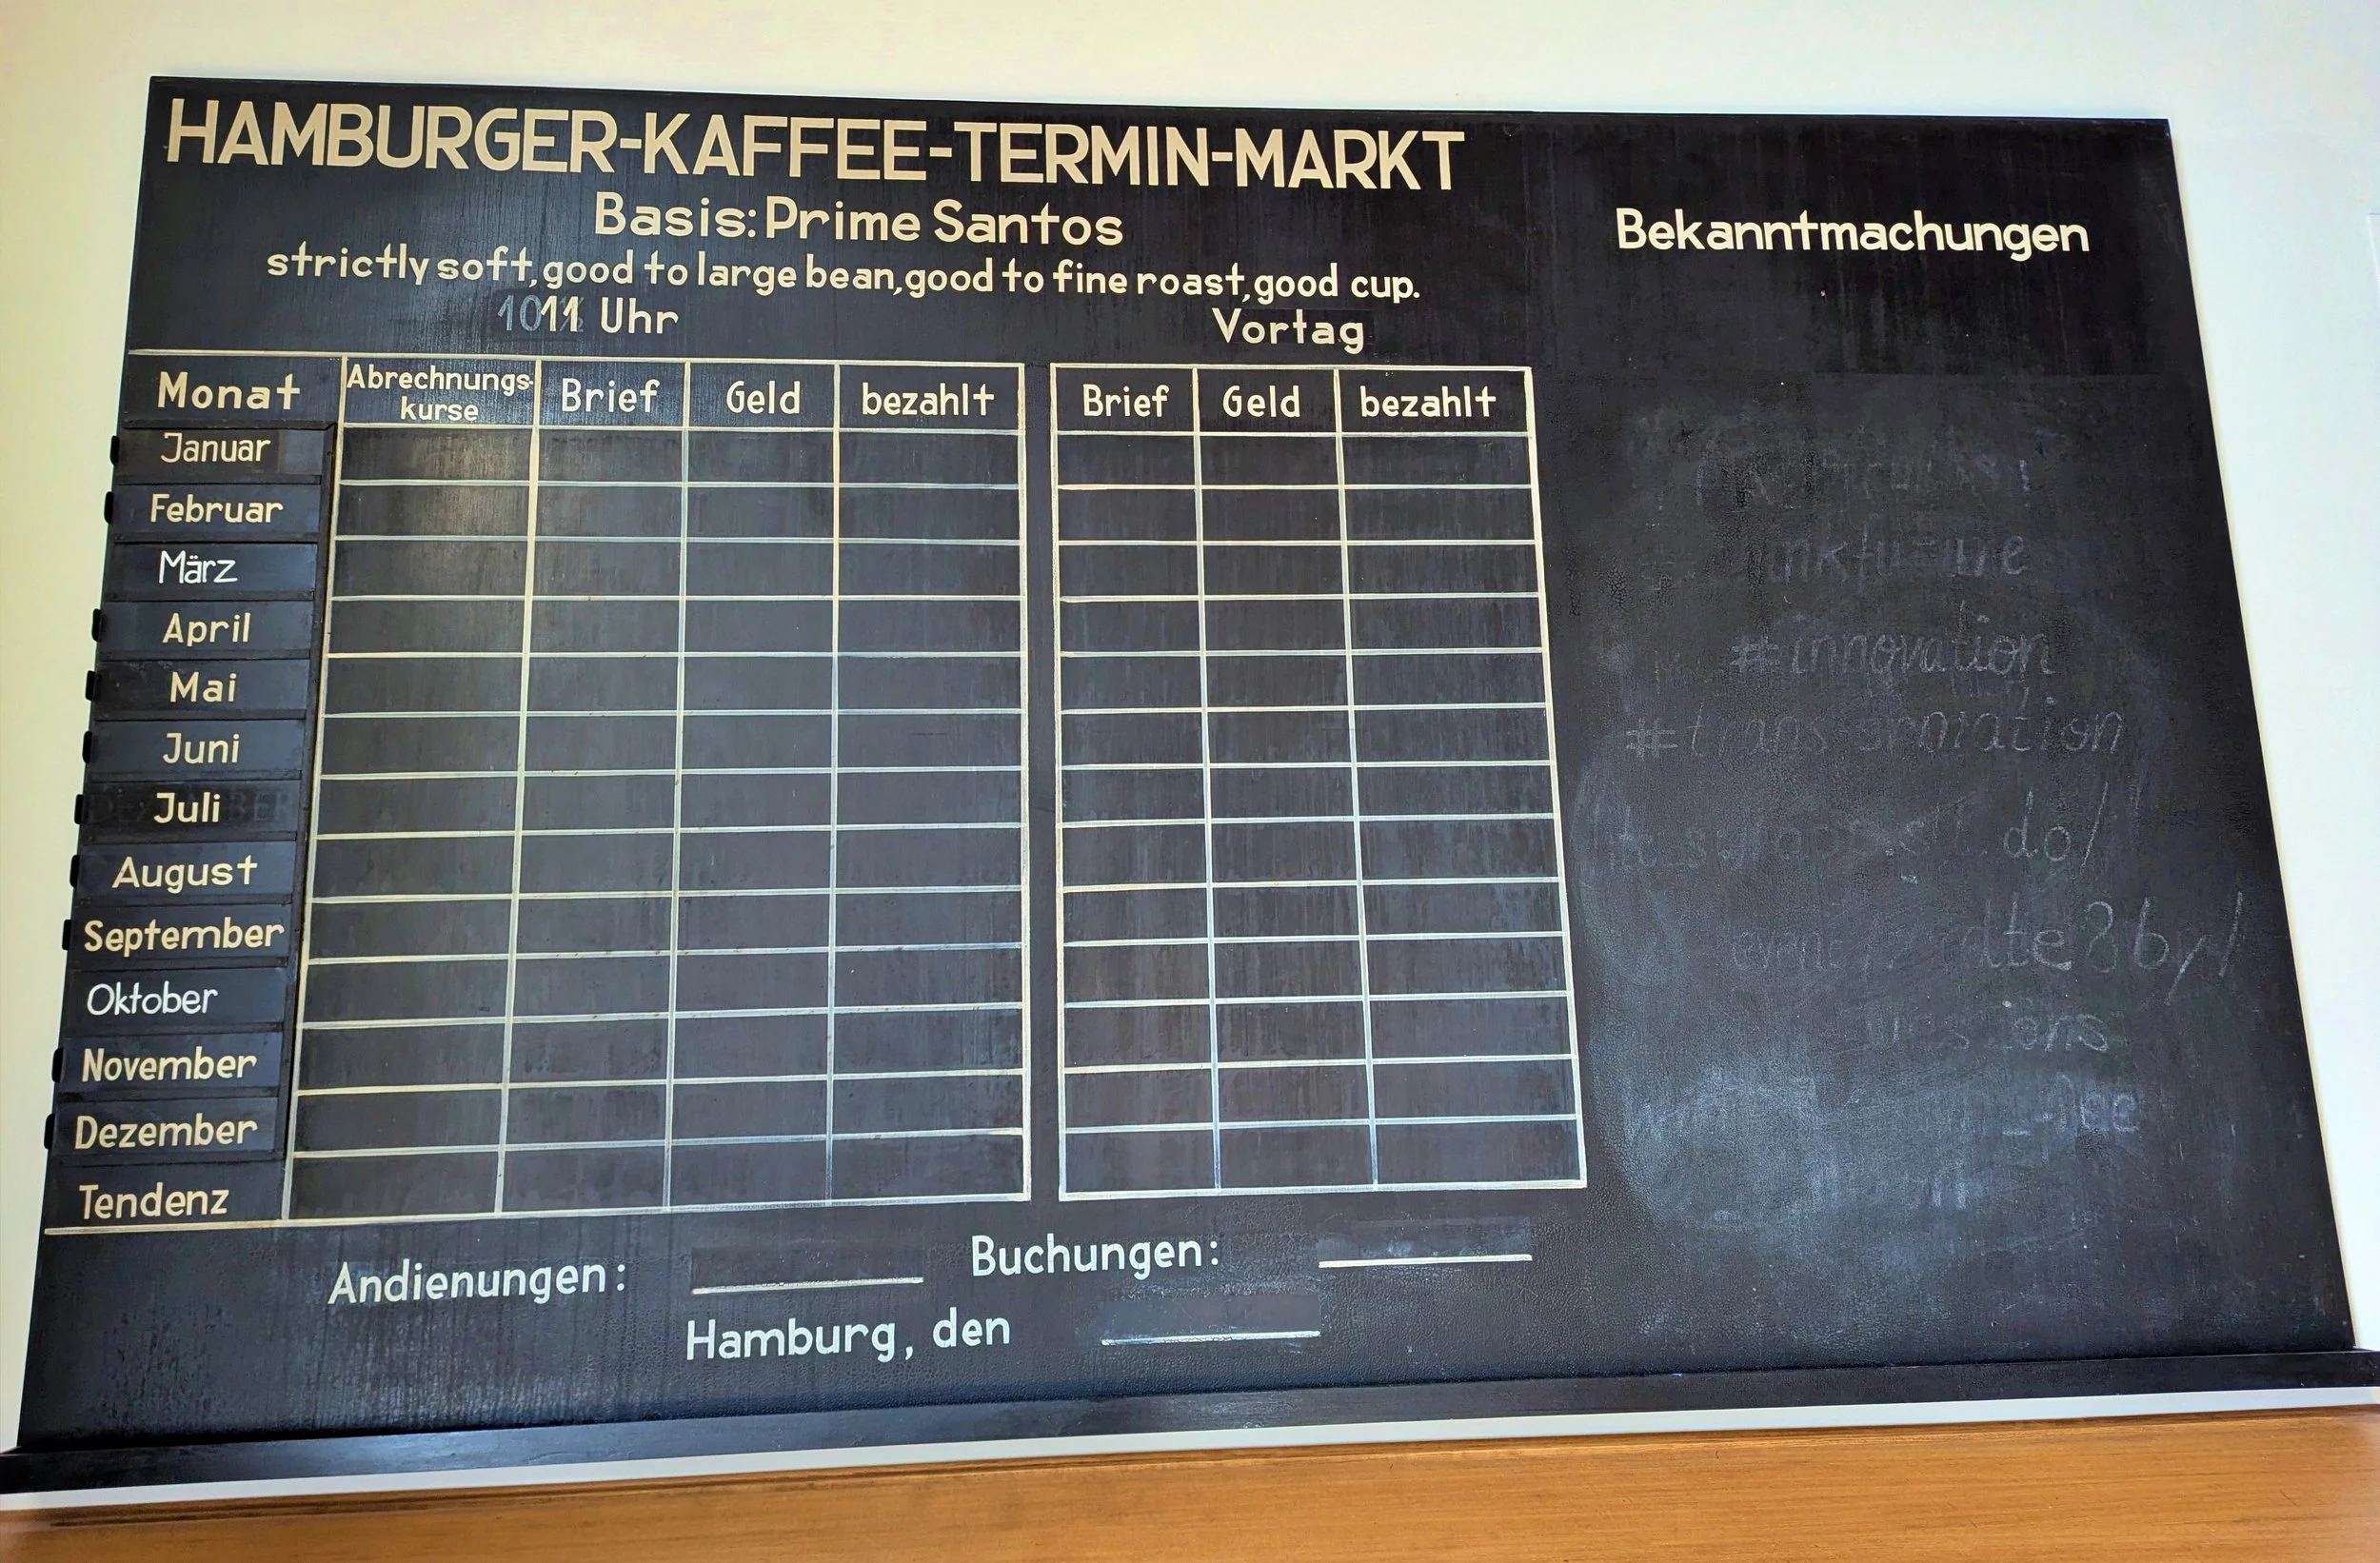 HAMBURGER-KAFFEE-TERMIN-MARKT
Basis: Prime Santos
strictly soft, good to large bean, good to fine roast, good cup.
11 Uhr
Vortag
Monat Abrechnungs-kurse Brief Geld bezahlt Brief Geld bezahlt
Januar
Februar
März
April
Mai
Juni
Juli
August
September
Oktober
November
Dezember
Tendenz
Andienungen: Buchungen:
Hamburg, den
Bekanntmachungen
#innovation
#transformation